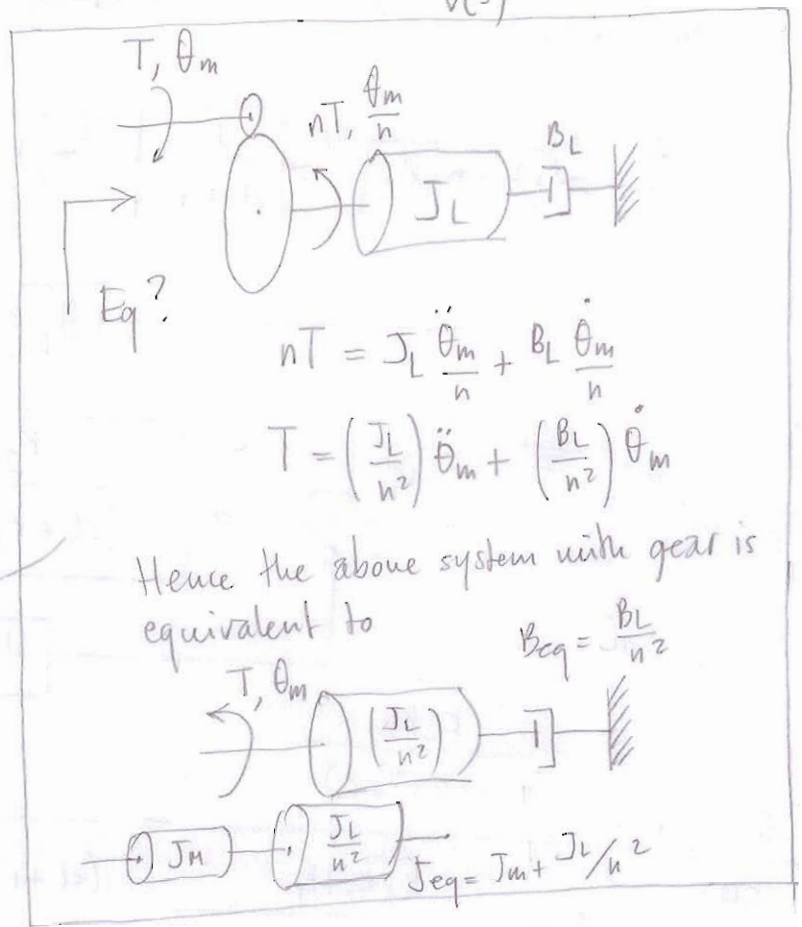 T, θm
nT, θm/n
BL
JL
Eq?
nT = JL θ̈m/n + BL θ̇m/n
T = (JL/n²) θ̈m + (BL/n²) θ̇m
Hence the above system with gear is
equivalent to
Beq = BL/n²
T, θm
(JL/n²)
JM
JL/n²
Jeq = Jm + JL/n²